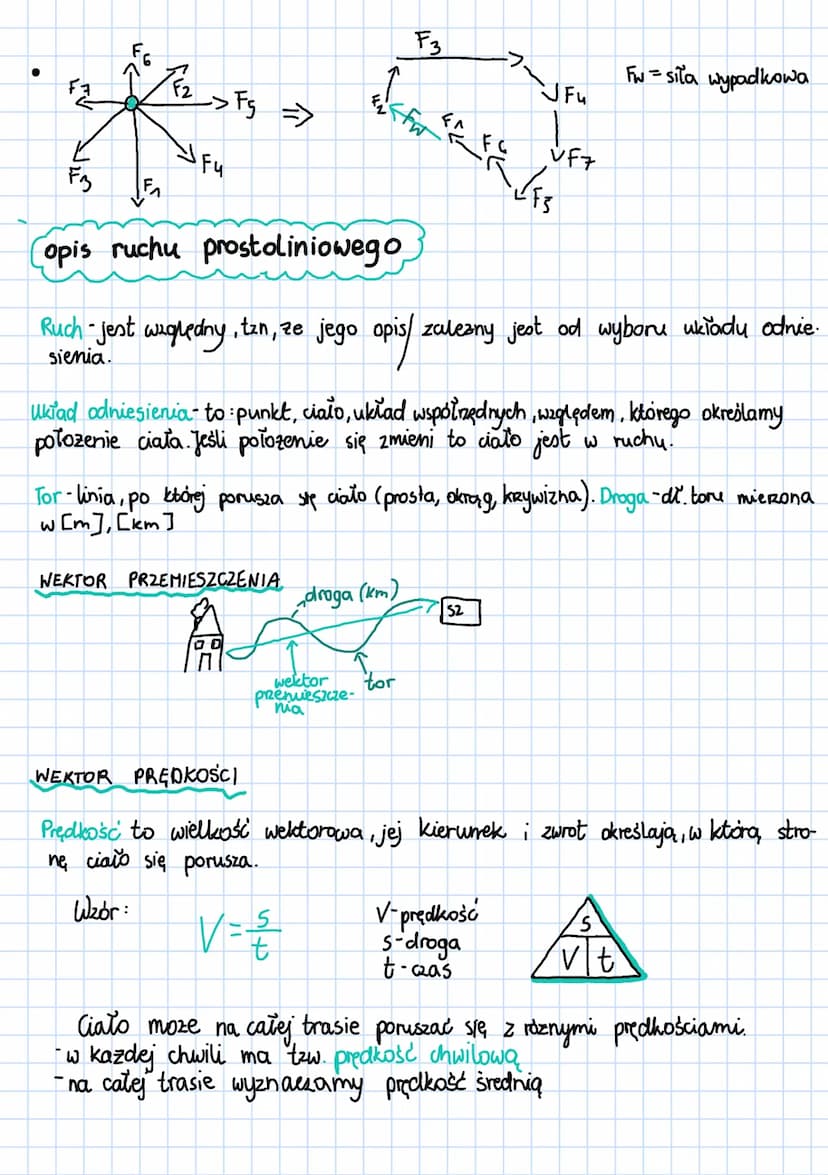 F6
F7 F2 F5 ⇒
F3 F1 F4
F3
F2 Fw F1 F6 F4
F7
F5
Fw = siła wypadkowa
opis ruchu prostoliniowego
Ruch - jest względny, tzn, że jego opis/ zależny jest od wyboru układu odnie-
sienia.
Układ odniesienia - to: punkt, ciało, układ współrzędnych, względem, którego określamy
położenie ciała. Jeśli położenie się zmieni to ciało jest w ruchu.
Tor - linia, po której porusza się ciało (prosta, okrąg, krzywizna). Droga - dł. toru mierzona
w [m], [km]
WEKTOR PRZEMIESZCZENIA
droga (km)
SZ
wektor
przemieszcze-
nia
tor
WEKTOR PRĘDKOŚCI
Prędkość to wielkość wektorowa, jej kierunek i zwrot określają, w którą stro-
nę ciało się porusza.
Wzór:
V = s/t
V - prędkość
s - droga
t - czas
s
V t
Ciało może na całej trasie poruszać się z różnymi prędkościami.
- w każdej chwili ma tzw. prędkość chwilową
- na całej trasie wyznaczamy prędkość średnią